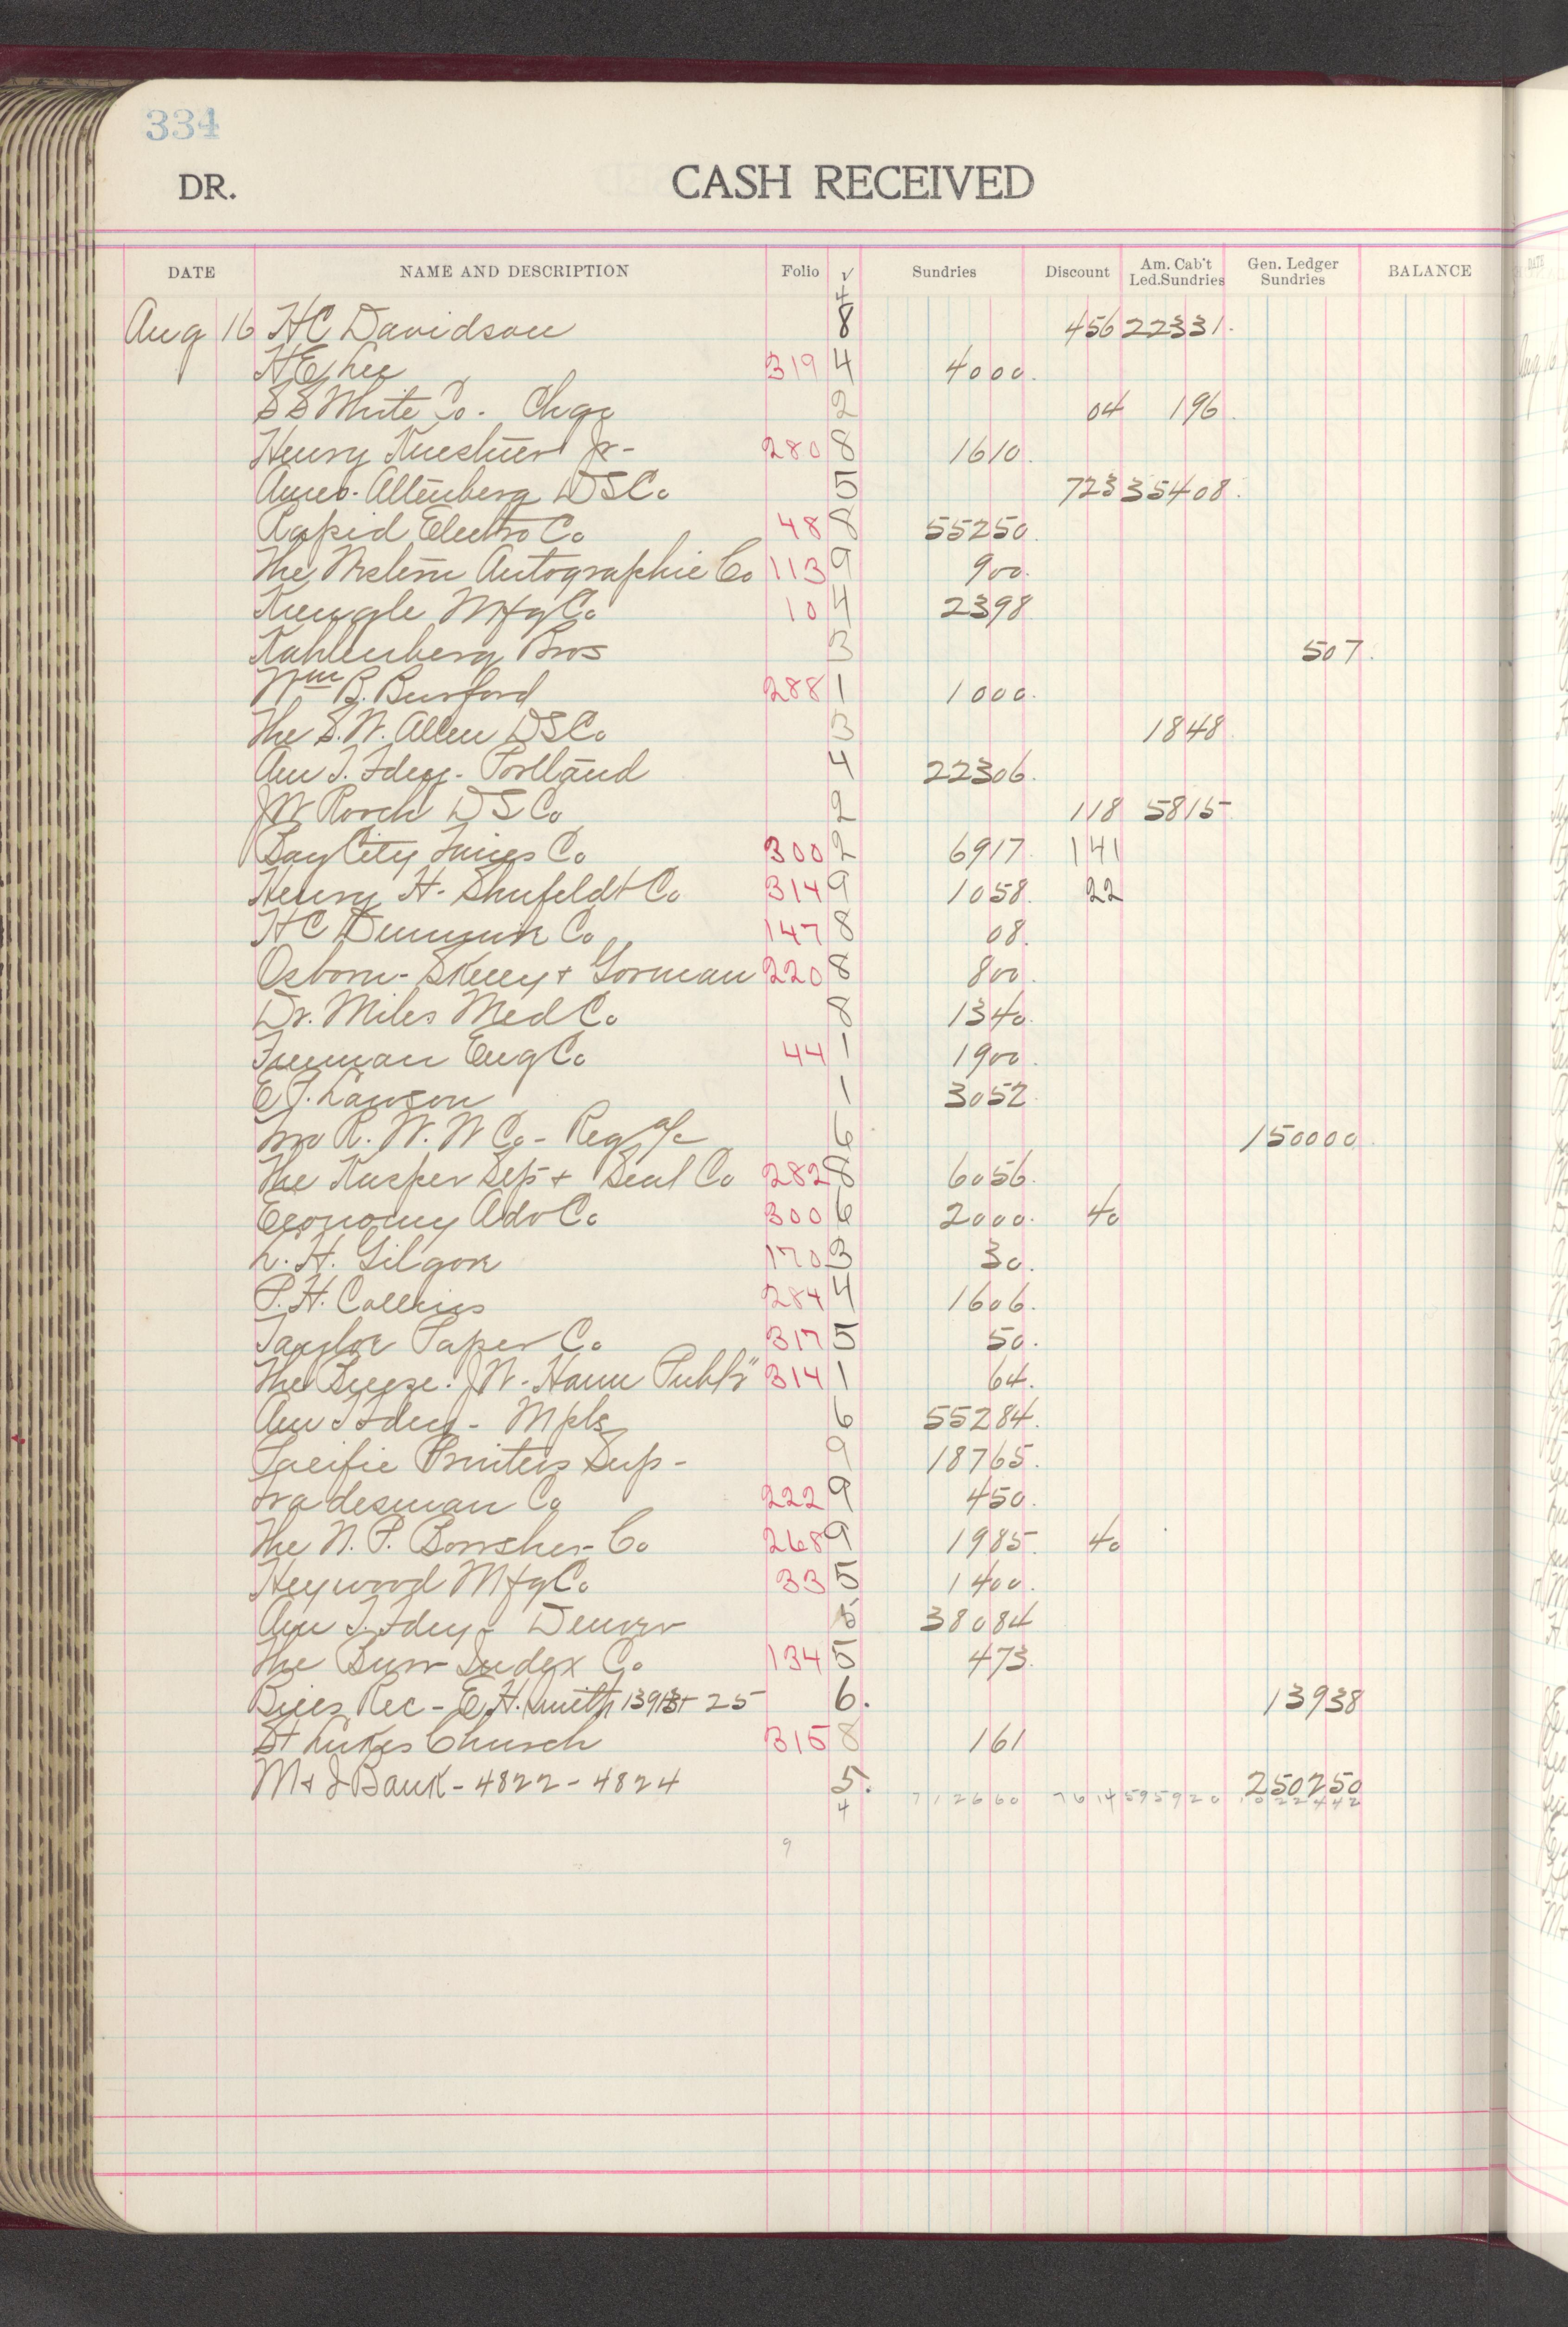 334
DR. CASH RECEIVED
DATE NAME AND DESCRIPTION Folio √ Sundries Discount Am. Cab't Led.Sundries Gen. Ledger Sundries BALANCE
4
Aug 16 HC Davidson 8 456 22331.
H E Lee 319 4 4000.
S S White Co. Chgo 2 04 196.
Henry Kuestner Jr- 280 8 1610.
Ames. Altenberg DS Co 5 723 35408.
Rapid Electro Co 48 8 55250.
The Western Autographic Co 113 9 900.
Kungle Mfg Co 10 4 2398
Kahlenberg Bros 3 507.
Wm B. Burford 288 1 1000.
The S. W. Allen DS Co 3 1848.
Am T. Fdry. Portland 4 22306.
JW Roach DS Co 2 118 5815
Bay City Times Co 300 2 6917. 141
Henry H. Shufeldt Co 314 9 1058. 22
HC Co 147 8 08.
Osborn- Skelly + Gorman 220 8 800.
Dr. Miles Med Co 8 1340.
Freeman Eng Co 44 1 1900.
E J. Lawson 1 3052.
R. W. W Co - Reg a/c 6 150000.
The Kasper Sep + Seal Co 282 8 6056.
Economy Adv Co 300 6 2000. 40
L. H. 170 3 30.
P. H. Collins 284 4 1606.
Taylor Paper Co 317 5 50.
The J W. Hann Publr 314 1 64.
Am T Fdry - Mpls 6 55284.
Pacific Printers Sup - 9 18765.
Tradesman Co 222 9 450.
The N. P. Bowsher Co 268 9 1985. 40
Heywood Mfg Co 33 5 1400.
Am T. Fdry - Denver 5 38084
The Burr Index Co 134 5 473.
Bills Rec - E. H. Smith 13913 + 25 6. 13938
St Lukes Church 315 8 161
M + I Bank - 4822 - 4824 5. 250250
4 712660 7614 595920
9